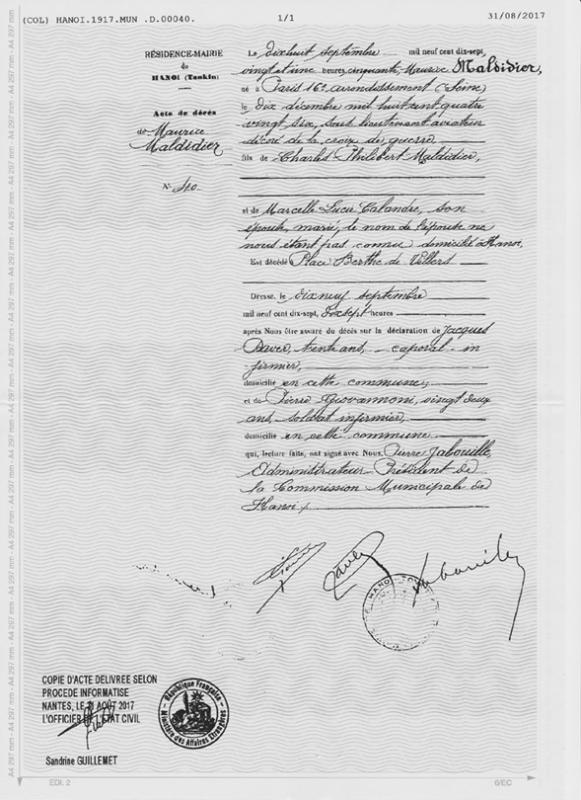 (COL) HANOI.1917.MUN .D.00040.
1/1
31/08/2017
RÉSIDENCE-MAIRIE
de
HANOI (Tonkin)
Acte de décès
de Maurice
Maldidier
N° 40
Le dix huit septembre mil neuf cent dix-sept,
vingt et une heures cinquante, Maurice Maldidier,
né à Paris 16e arrondissement (Seine)
le dix décembre mil huit cent quatre
vingt six, sous lieutenant aviation
décoré de la croix de guerre,
fils de Charles Philibert Maldidier,
et de Marcelle Lucie Calandre, son
épouse, marié, le nom de l'épouse ne
nous étant pas connu domicilié à Hanoi,
Est décédé Place Berthe de Villers
Dressé, le dix neuf septembre
mil neuf cent dix-sept, dix sept heures
après Nous être assuré du décès sur la déclaration de Jacques
trente ans, caporal in
firmier,
domicilié en cette commune,
et de Pierre Giovannoni, vingt deux
ans, soldat infirmier,
domicilié en cette commune
qui, lecture faite, ont signé avec Nous, Pierre Jabouille,
Administrateur Président de
la Commission Municipale de
Hanoi.
COPIE D'ACTE DELIVREE SELON
PROCEDE INFORMATISE
NANTES, LE 31 AOUT 2017
L'OFFICIER DE L'ETAT CIVIL
République Française
Ministère des Affaires Etrangères
Sandrine GUILLEMET
EDI. 2